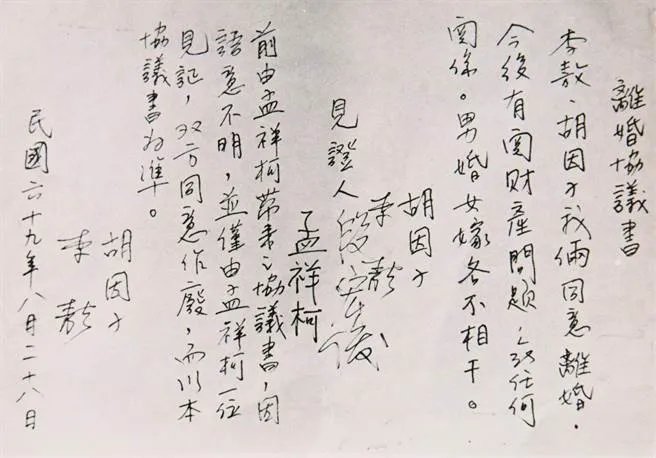 離婚協議書
李敖、胡因子我倆同意離婚。
今後有関財產問題,沒任何
関係。男婚女嫁各不相干。
胡因子
李敖
見證人段宏俊
孟祥柯
前由孟祥柯帶來之協議書,因
語意不明,並僅由孟祥柯一位
見証,双方同意作廢,而以本
協議書為準。
胡因子
李敖
民國六十九年八月二十八日